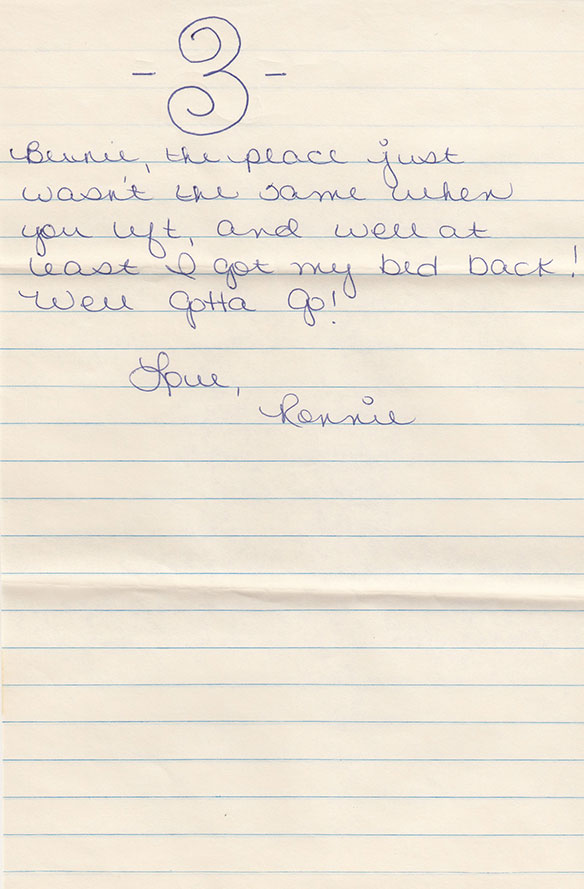 -3-
Bennie, the place just
wasn't the same when
you left, and well at
least I got my bed back!
Well Gotta Go!
Love,
Ronnie